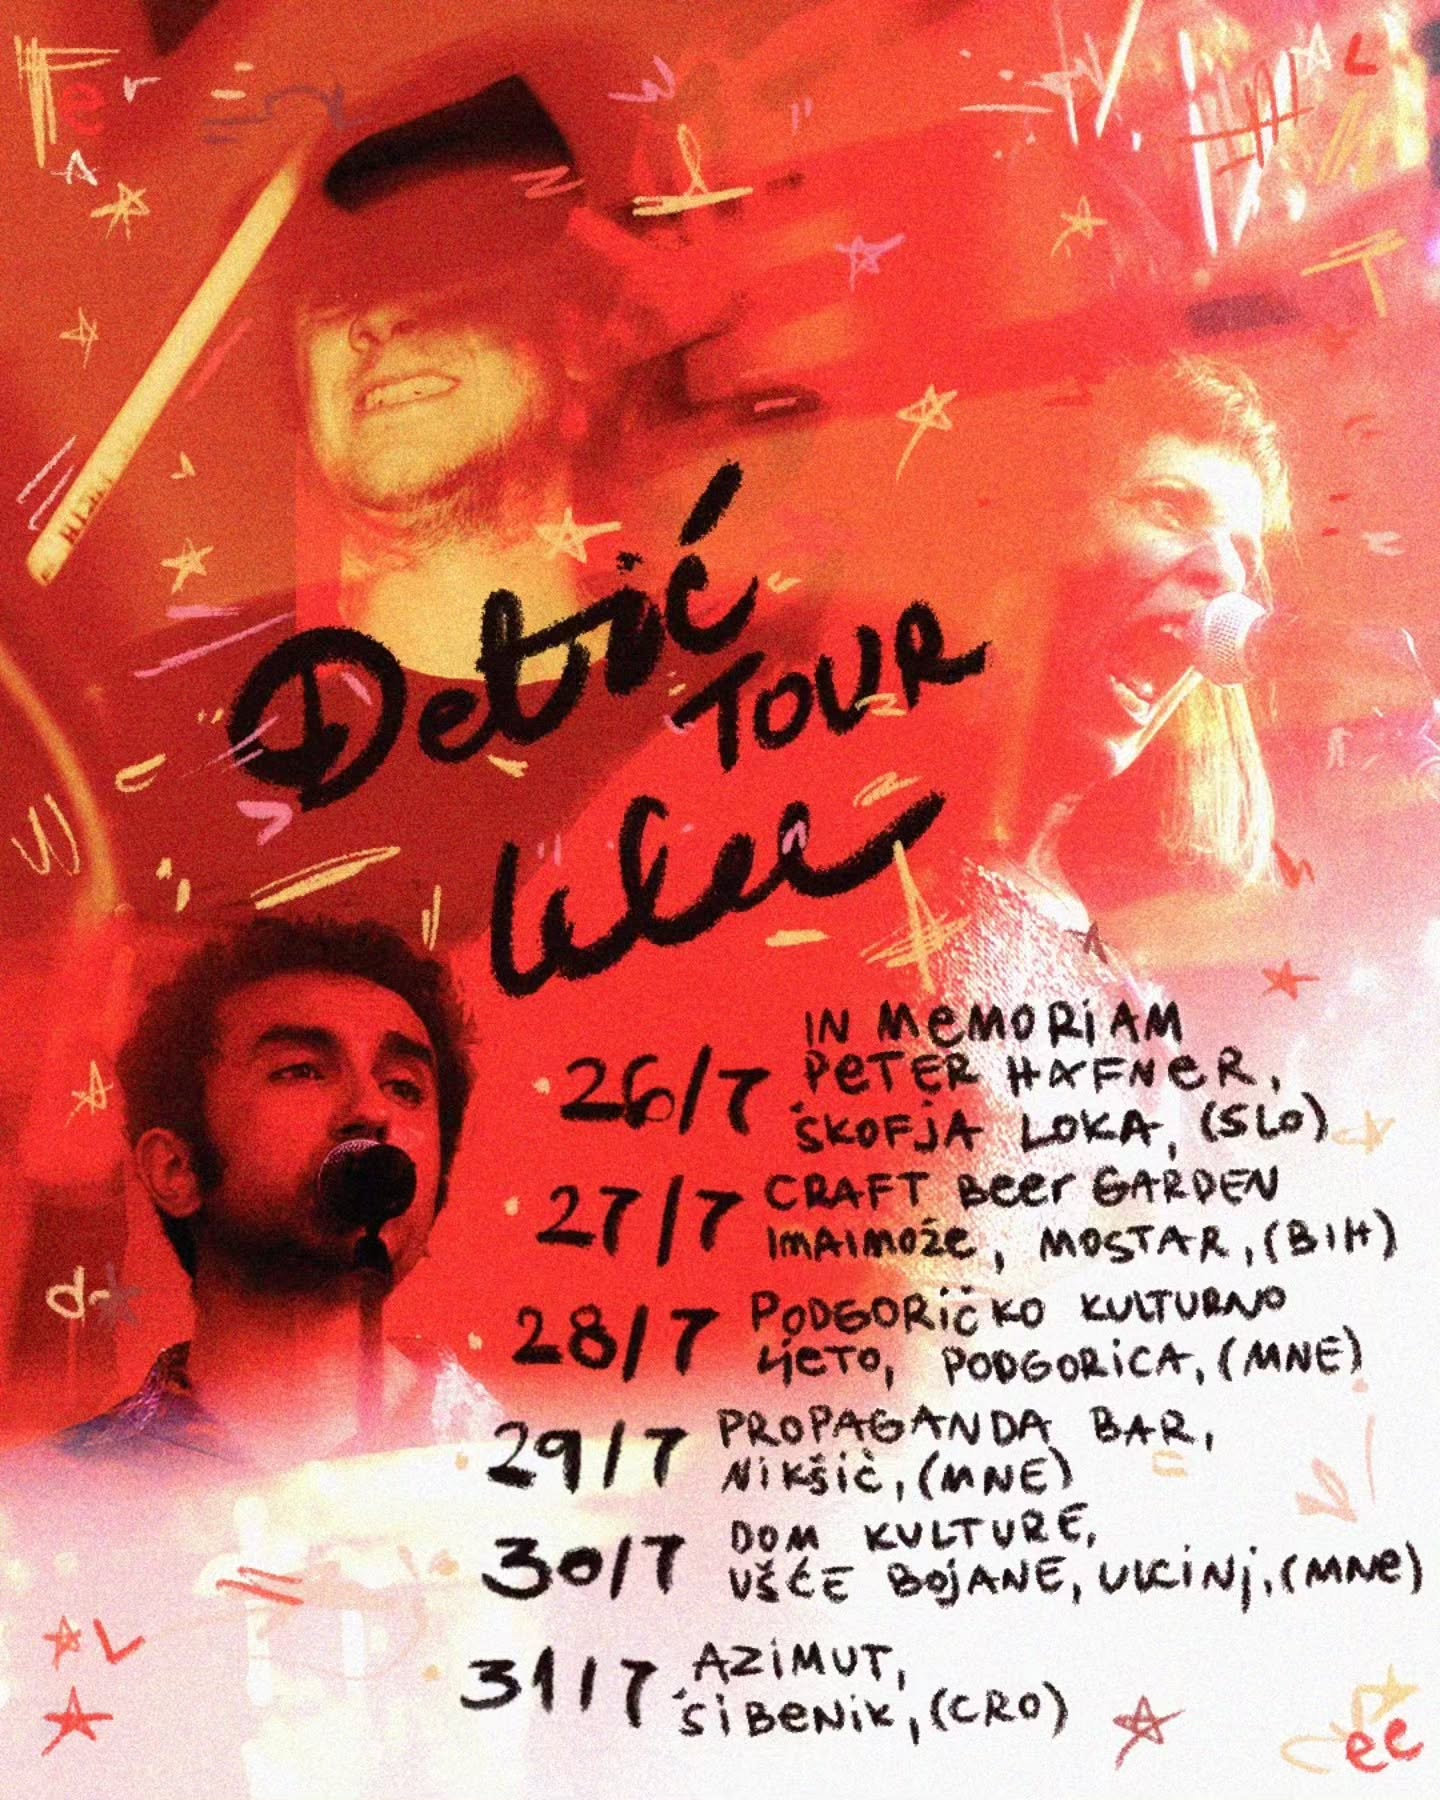 Detrić
TOUR
26/7
IN MEMORIAM
PETER HAFNER,
ŠKOFJA LOKA, (SLO)
27/7
CRAFT BEER GARDEN
IMAIMOŽE, MOSTAR, (BIH)
28/7
PODGORIČKO KULTURNO
LJETO, PODGORICA, (MNE)
29/7
PROPAGANDA BAR,
NIKŠIĆ, (MNE)
30/7
DOM KULTURE,
UŠĆE BOJANE, ULCINJ, (MNE)
31/7
AZIMUT,
ŠIBENIK, (CRO)